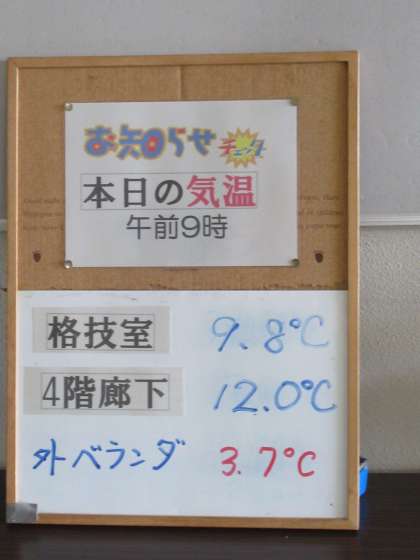 お知らせ チェック
本日の気温
午前9時
格技室 9.8℃
4階廊下 12.0℃
外ベランダ 3.7℃